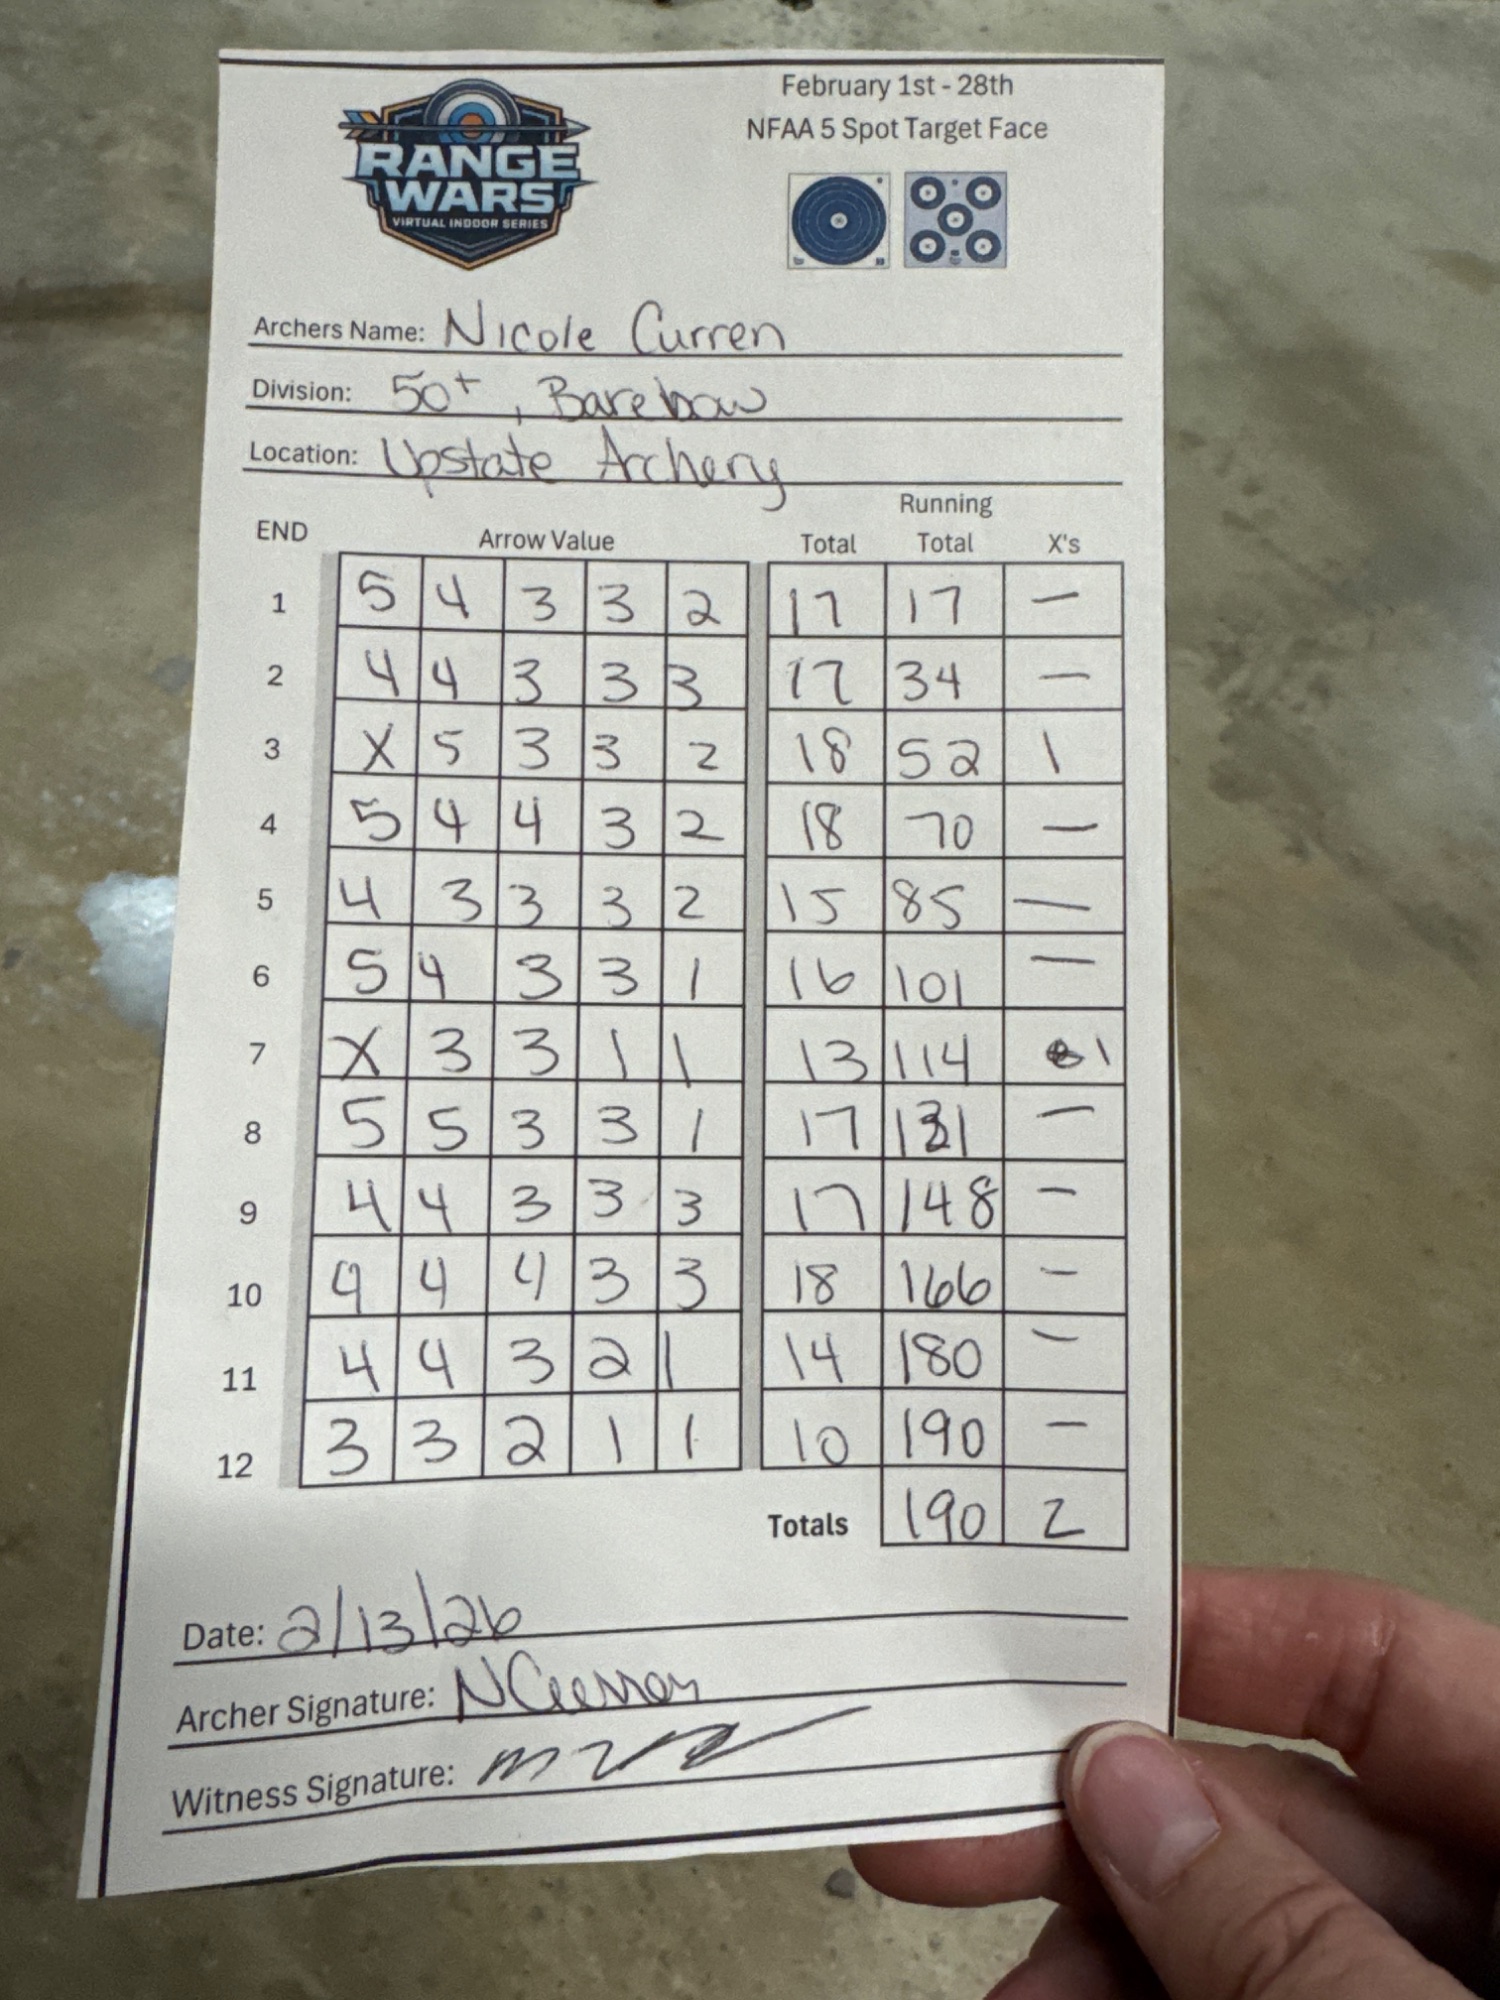 February 1st - 28th
NFAA 5 Spot Target Face
RANGE
WARS
VIRTUAL INDOOR SERIES
Archers Name: Nicole Curren
Division: 50+, Barebow
Location: Upstate Archery
Running
END Arrow Value Total Total X's
1 5 4 3 3 2 17 17 —
2 4 4 3 3 3 17 34 —
3 X 5 3 3 2 18 52 1
4 5 4 4 3 2 18 70 —
5 4 3 3 3 2 15 85 —
6 5 4 3 3 1 16 101 —
7 X 3 3 1 1 13 114 1
8 5 5 3 3 1 17 131 —
9 4 4 3 3 3 17 148 —
10 4 4 4 3 3 18 166 —
11 4 4 3 2 1 14 180 —
12 3 3 2 1 1 10 190 —
Totals 190 2
Date: 2/13/26
Archer Signature: NCurren
Witness Signature: